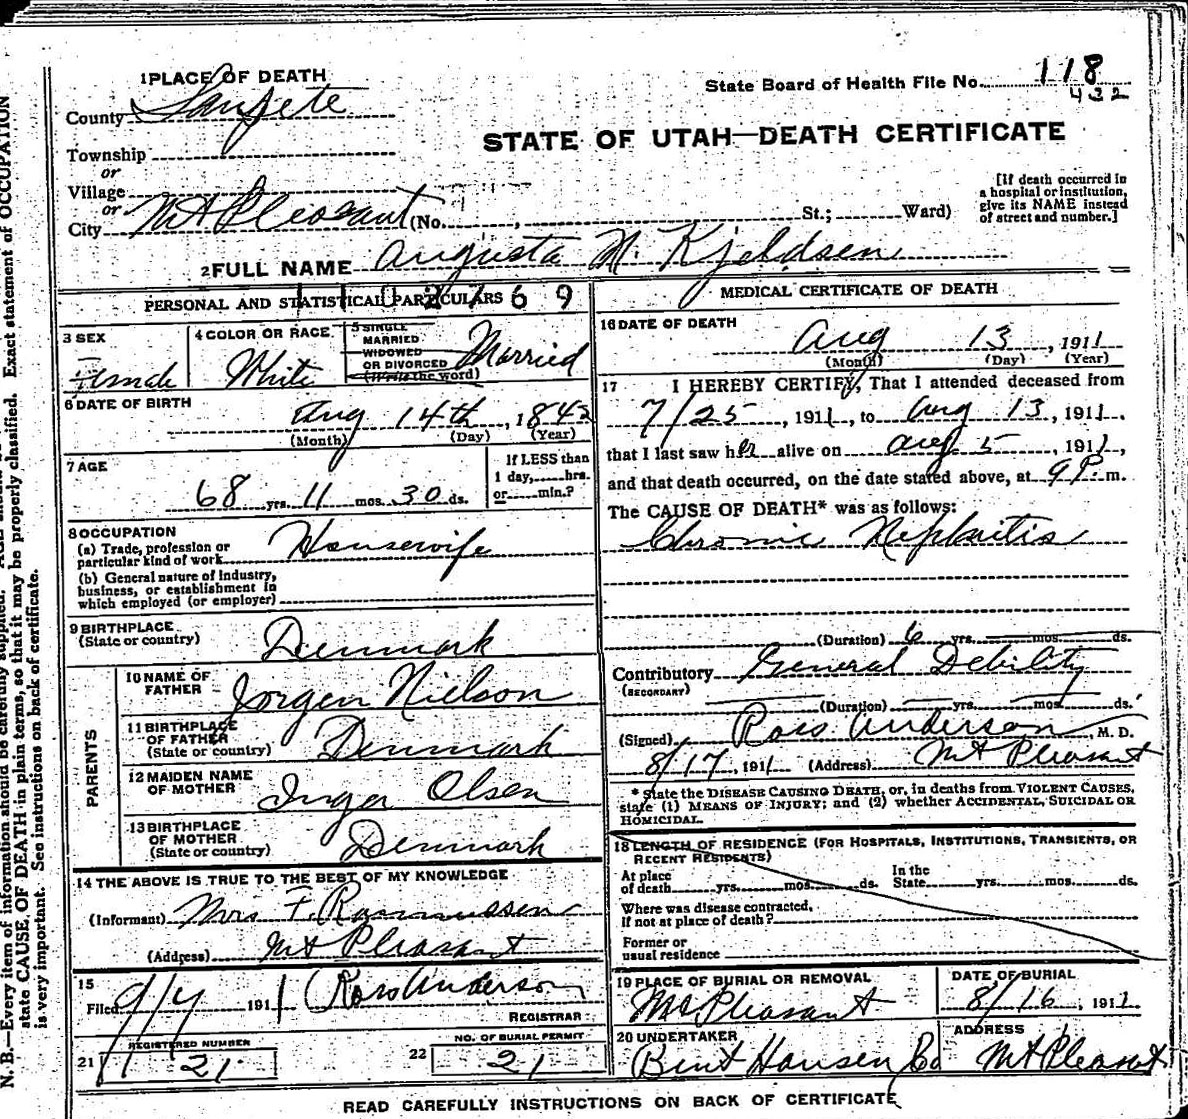 1 PLACE OF DEATH
County Sanpete
State Board of Health File No. 118
432
STATE OF UTAH—DEATH CERTIFICATE
Township
or
Village
or
City Mt Pleasant (No. , St.; Ward)
[If death occurred in
a hospital or institution,
give its NAME instead
of street and number.]
2 FULL NAME Augusta N. Kjeldsen
PERSONAL AND STATISTICAL PARTICULARS
1102769
3 SEX
Female
4 COLOR OR RACE
White
5 SINGLE
MARRIED
WIDOWED
OR DIVORCED
(Write the word)
Married
6 DATE OF BIRTH
Aug 14th, 1842
(Month) (Day) (Year)
7 AGE
68 yrs. 11 mos. 30 ds.
If LESS than
1 day, hrs.
or min.?
8 OCCUPATION
(a) Trade, profession or
particular kind of work Housewife
(b) General nature of Industry,
business, or establishment in
which employed (or employer)
9 BIRTHPLACE
(State or country) Denmark
PARENTS
10 NAME OF
FATHER Jorgen Nielson
11 BIRTHPLACE
OF FATHER
(State or country) Denmark
12 MAIDEN NAME
OF MOTHER Inger Olsen
13 BIRTHPLACE
OF MOTHER
(State or country) Denmark
14 THE ABOVE IS TRUE TO THE BEST OF MY KNOWLEDGE
(Informant) Mrs F. Rasmussen
(Address) Mt Pleasant
15
Filed 9/4, 1911 Ross Anderson
REGISTRAR
REGISTERED NUMBER
21 21
NO. OF BURIAL PERMIT
22 21
MEDICAL CERTIFICATE OF DEATH
16 DATE OF DEATH
Aug 13, 1911
(Month) (Day) (Year)
17 I HEREBY CERTIFY, That I attended deceased from
7/25, 1911, to Aug 13, 1911,
that I last saw her alive on Aug 5, 1911,
and that death occurred, on the date stated above, at 9 P. m.
The CAUSE OF DEATH* was as follows:
Chronic Nephritis
(Duration) 6 yrs. mos. ds.
Contributory General Debility
(SECONDARY)
(Duration) yrs. mos. ds.
(Signed) Ross Anderson, M. D.
8/17, 1911 (Address) Mt Pleasant
* State the DISEASE CAUSING DEATH, or, in deaths from VIOLENT CAUSES,
state (1) MEANS OF INJURY; and (2) whether ACCIDENTAL, SUICIDAL OR
HOMICIDAL.
18 LENGTH OF RESIDENCE (FOR HOSPITALS, INSTITUTIONS, TRANSIENTS, OR
RECENT RESIDENTS)
At place
of death yrs. mos. ds.
In the
State yrs. mos. ds.
Where was disease contracted,
if not at place of death?
Former or
usual residence
19 PLACE OF BURIAL OR REMOVAL
Mt Pleasant
DATE OF BURIAL
8/16, 1911
20 UNDERTAKER
Bent Hansen Co
ADDRESS
Mt Pleasant
READ CAREFULLY INSTRUCTIONS ON BACK OF CERTIFICATE
N. B.—Every item of information should be carefully supplied.
state CAUSE OF DEATH in plain terms, so that it may be properly classified. Exact statement of OCCUPATION
is very important. See instructions on back of certificate.